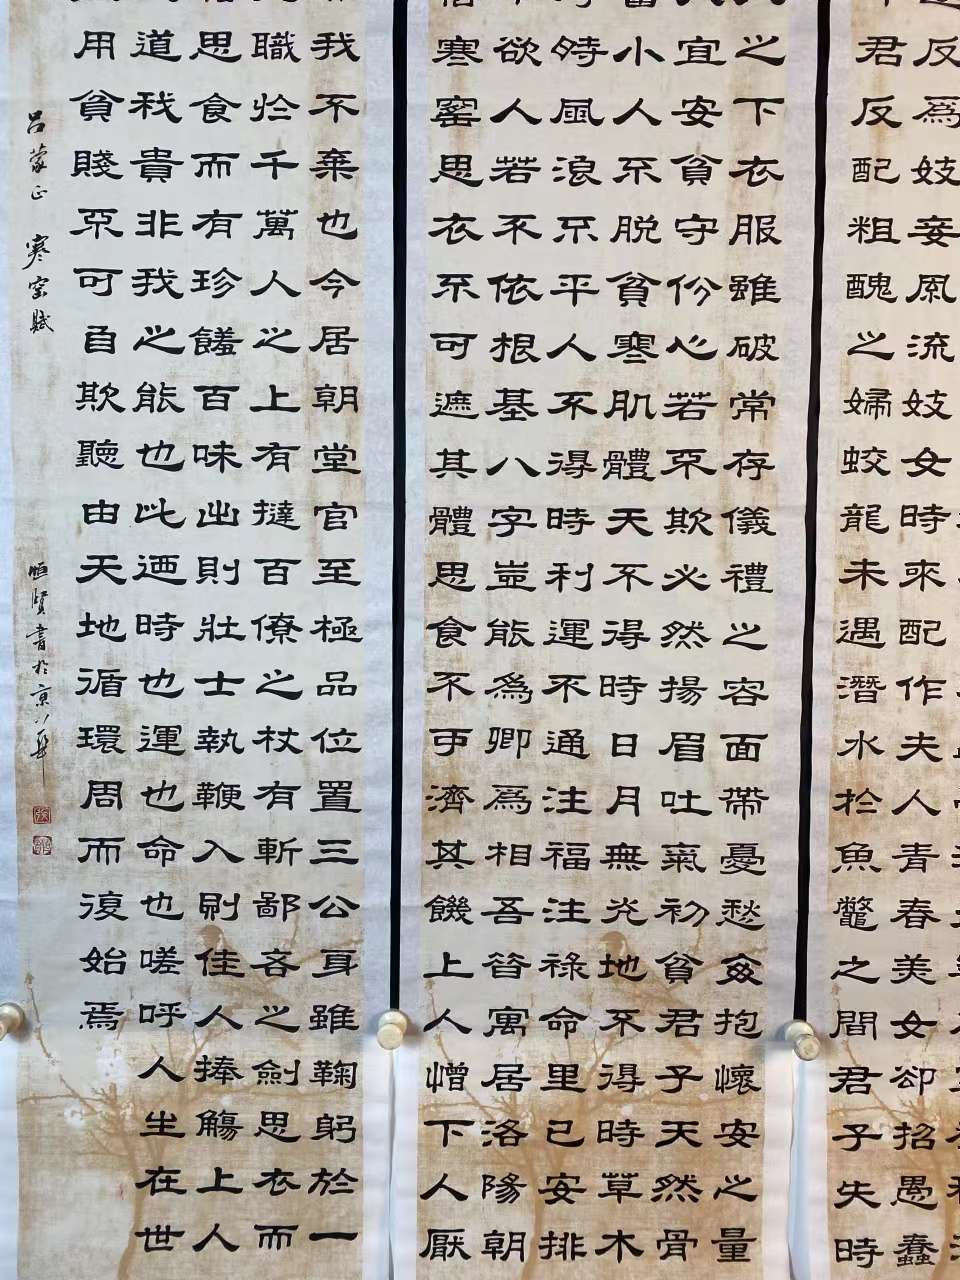 反為妓妾風流妓女時來配作夫人青春美女卻招愚蠢
君反配粗醜之婦蛟龍未遇潛水於魚鱉之間君子失時
之下衣服雖破常存儀禮之容面帶憂愁每抱懷安之量
宜安貧守份心若不欺必然揚眉吐氣初貧君子天然骨
小人不脫貧寒肌體天不得時日月無光地不得時草木
時風浪不平人不得時利運不通注福注祿命里已安排
欲人若不依根基八字豈能為卿為相吾昔寓居洛陽朝
寒窰思衣不可遮其體思食不可濟其饑上人憎下人厭
我不棄也今居朝堂官至極品位置三公身雖鞠躬於一
職於千萬人之上有撻百僚之杖有斬鄙吝之劍思衣而
思食而有珍饈百味出則壯士執鞭入則佳人捧觴上人
道我貴非我之能也此迺時也運也命也嗟呼人生在世
用貧賤不可自欺聽由天地循環周而復始焉
呂蒙正 寒窑賦 恒賢書於京華